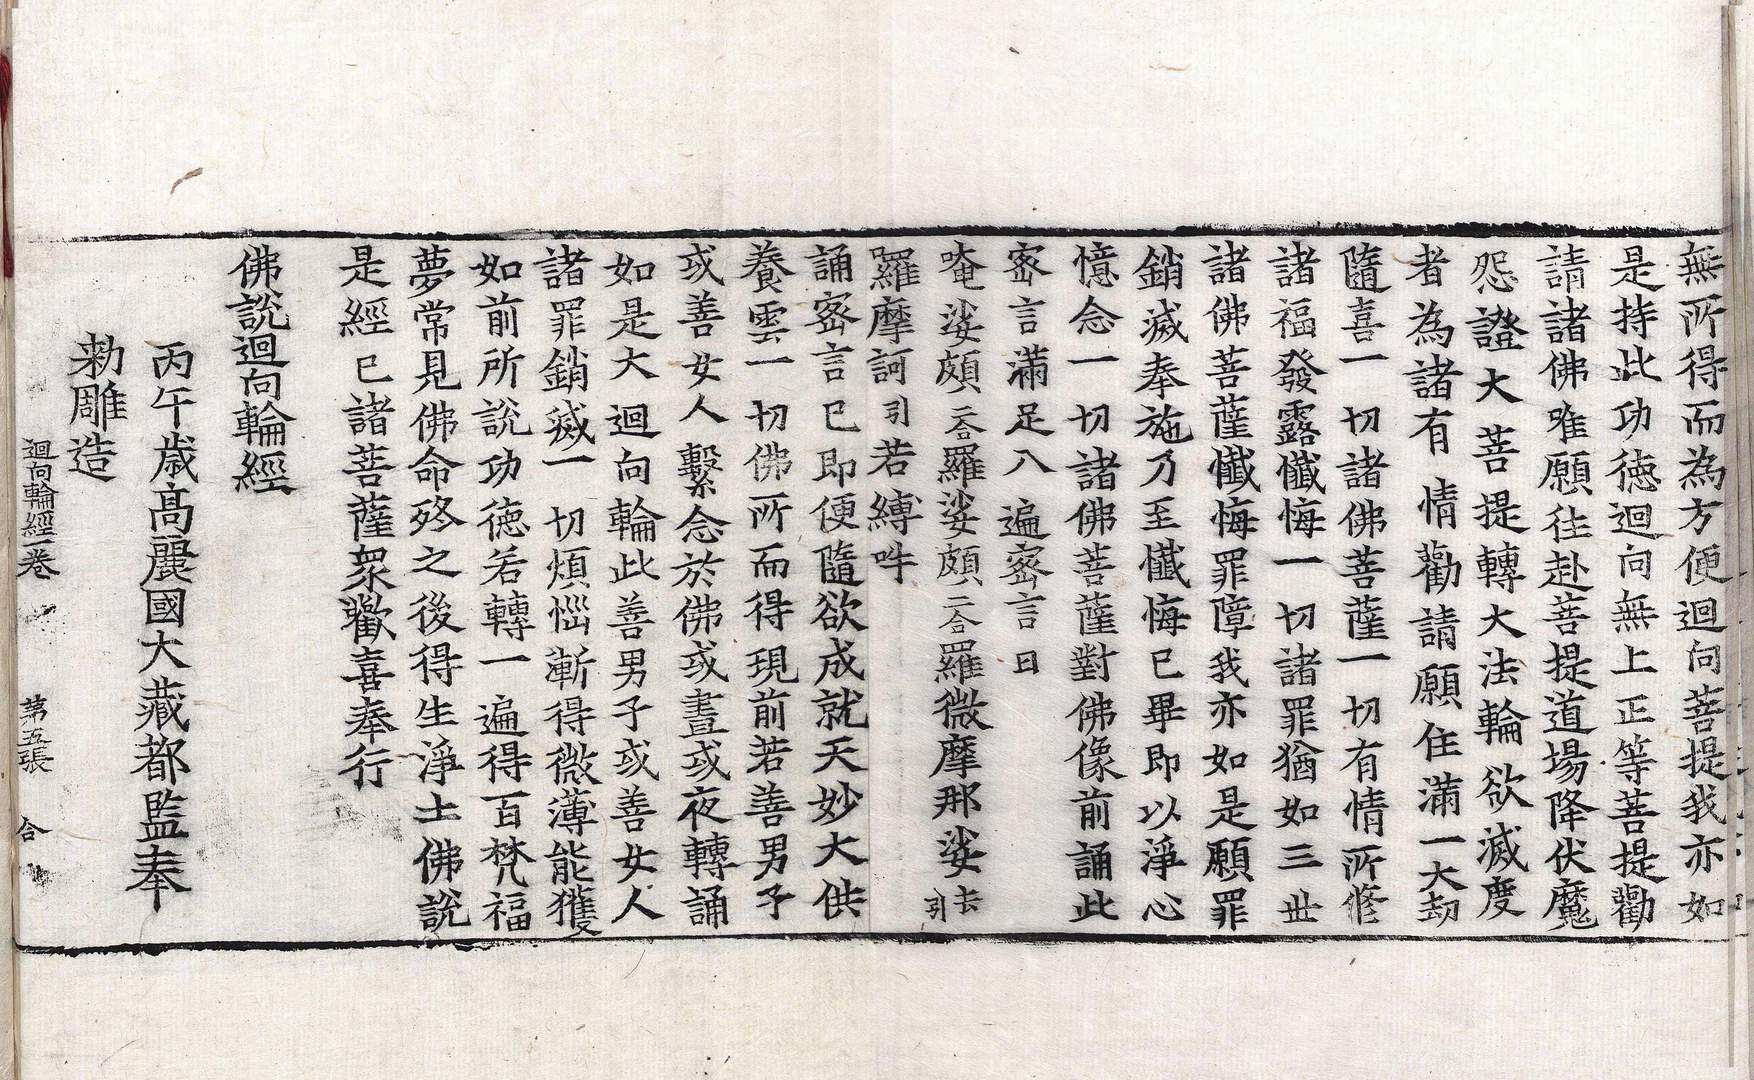 無所得而為方便迴向菩提我亦如
是持此功德迴向無上正等菩提勸
請諸佛唯願往赴菩提道場降伏魔
怨證大菩提轉大法輪欲滅度
者為諸有情勸請願住滿一大劫
隨喜一切諸佛菩薩一切有情所修
諸福發露懺悔一切諸罪猶如三世
諸佛菩薩懺悔罪障我亦如是願罪
銷滅奉施乃至懺悔已畢即以淨心
憶念一切諸佛菩薩對佛像前誦此
密言滿足八遍密言曰
唵娑頗二合羅娑頗二合羅微摩那娑去引
囉摩訶引若縛吽
誦密言已即便隨欲成就天妙大供
養雲一切佛所而得現前若善男子
或善女人繫念於佛或晝或夜轉誦
如是大迴向輪此善男子或善女人
諸罪銷滅一切煩惱漸得微薄能獲
如前所說功德若轉一遍得百梵福
夢常見佛命終之後得生淨土佛說
是經已諸菩薩眾歡喜奉行
佛說迴向輪經
丙午歲高麗國大藏都監奉
勑雕造
迴向輪經卷 第五張 合